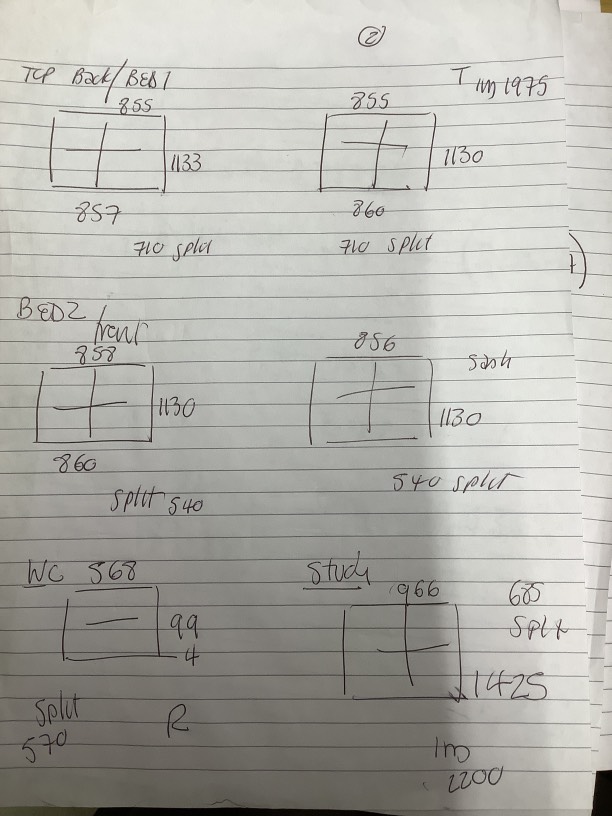 2
TCP Back/BED1
T Im 1975
855
855
1133
1130
857
860
710 split
710 split
BED2/front
858
856
sash
1130
1130
860
540 split
split 540
WC 568
Study
966
685
Split
994
1425
Split
570
R
Im
2200